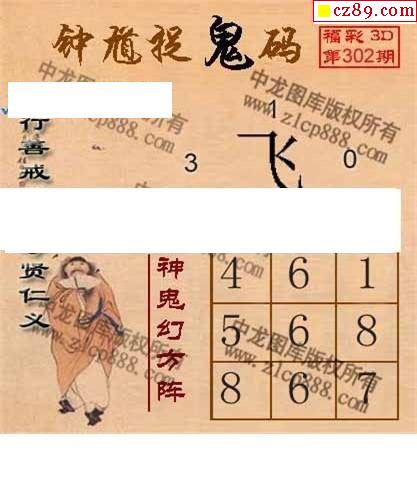 cz89.com
钟馗捉鬼码
福彩 3D
第302期
中龙图库版权所有
www.zlcp888.com
行善戒
1
飞
3
0
贤仁义
神鬼幻方阵
4 6 1
5 6 8
8 6 7
中龙图库版权所有
www.zlcp888.com